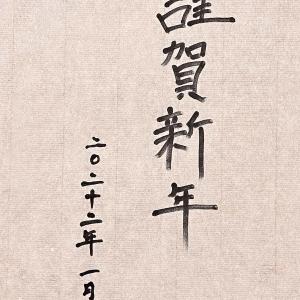 謹賀新年
二〇二十二年 一月